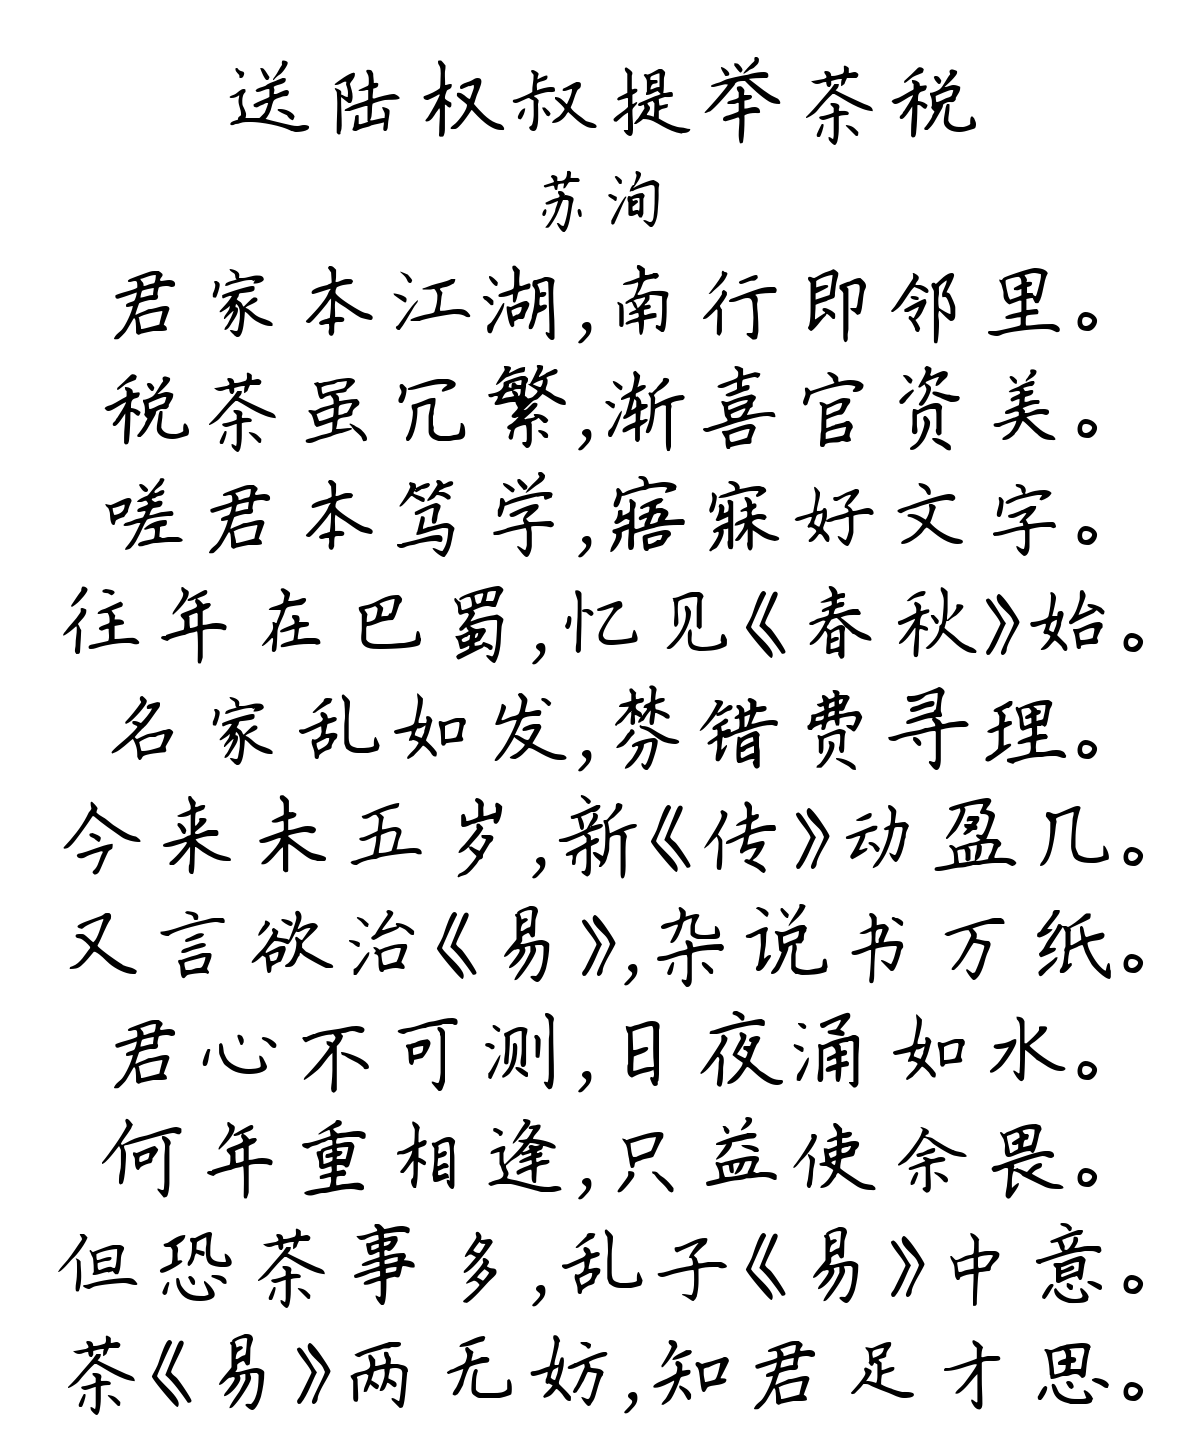 送陆权叔提举茶税
苏洵
君家本江湖,南行即邻里。
税茶虽冗繁,渐喜官资美。
嗟君本笃学,寤寐好文字。
往年在巴蜀,忆见《春秋》始。
名家乱如发,棼错费寻理。
今来未五岁,新《传》动盈几。
又言欲治《易》,杂说书万纸。
君心不可测,日夜涌如水。
何年重相逢,只益使余畏。
但恐茶事多,乱子《易》中意。
茶《易》两无妨,知君足才思。